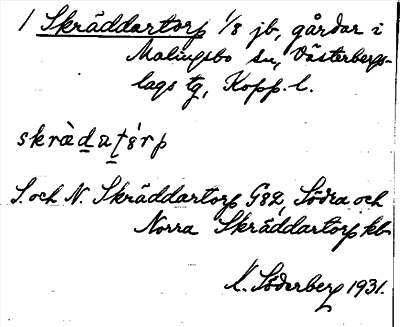 1 Skräddartorp 1/8 jb, gårdar i
Malingsbo sn, Västerbergs-
lags tg, Kopp. l.
skrà̀datórp
S. och N. Skräddartorp G82, Södra och
Norra Skräddartorp kb.
K. Söderberg 1931.